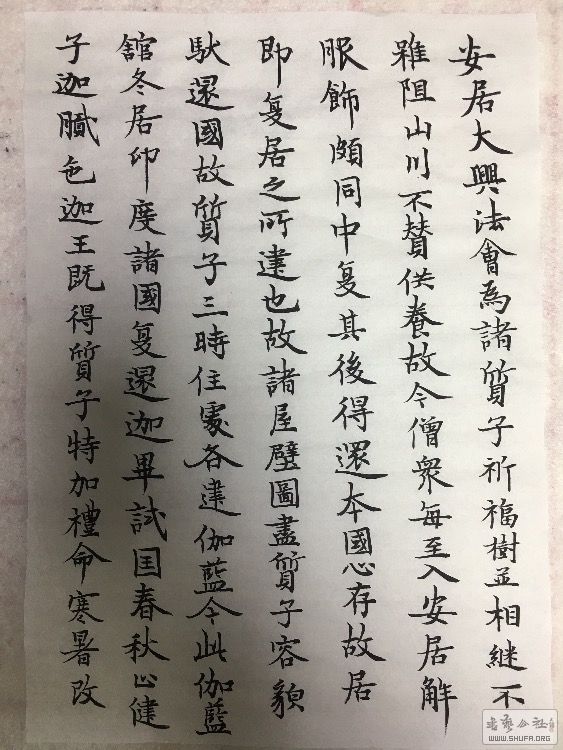 安居大興法會為諸質子祈福樹並相継不
雖阻山川不賛供養故今僧衆每至入安居解
服飾頗同中夏其後得還本國心存故居
即夏居之所建也故諸屋壁圖畫質子容貌
馱還國故質子三時住處各建伽藍今此伽藍
舘冬居印度諸國夏還迦畢試国春秋止健
子迦膩色迦王既得質子特加禮命寒暑改
書藝公社
WWW.SHUFA.ORG